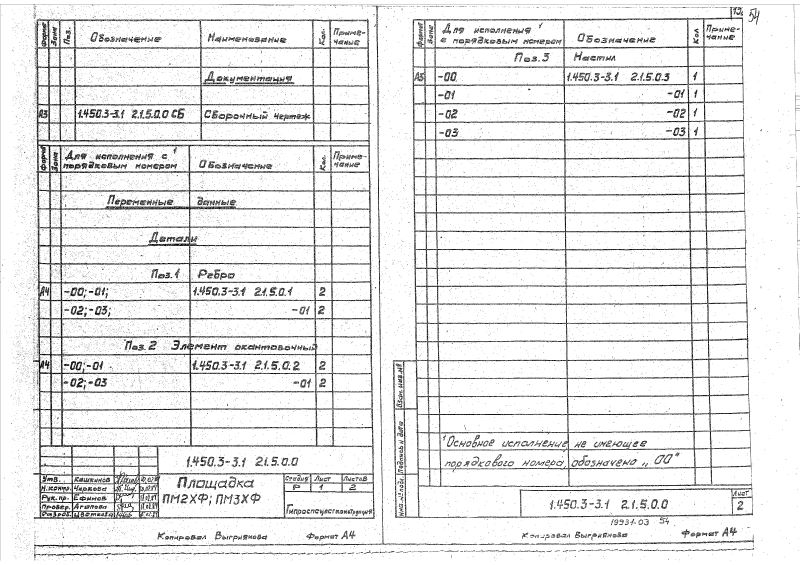 Формат Зона Поз. Обозначение Наименование Кол. Приме-
чание
Документация
А3 1.450.3-3.1 2.1.5.0.0 СБ Сборочный чертеж
Формат Зона Для исполнения с ¹
порядковым номером Обозначение Кол. Приме-
чание
Переменные данные
Детали
Поз.1 Ребро
А4 -00;-01; 1.450.3-3.1 2.1.5.0.1 2
-02;-03; -01 2
Поз.2 Элемент окантовочный
А4 -00;-01 1.450.3-3.1 2.1.5.0.2 2
-02;-03 -01 2
1.450.3-3.1 2.1.5.0.0
Утв. Кашкинов
Н.контр. Черкова
Рук.пр. Ефимов
Провер. Агапова
Разраб. Цветкова
Площадка
ПМ2ХФ; ПМ3ХФ
Стадия Лист Листов
Р 1 2
Копировал Выгриянова Формат А4
54
Формат Зона Для исполнения ¹
с порядковым номером Обозначение Кол Приме-
чание
Поз.3 Настил
А3 -00 1.450.3-3.1 2.1.5.0.3 1
-01 -01 1
-02 -02 1
-03 -03 1
¹Основное исполнение не имеющее
порядкового номера, обозначено „00"
Взам. инв.№
Подпись и дата
Инв.№ подл.
1.450.3-3.1 2.1.5.0.0
Лист
2
19931-03 54
Копировал Выгриянова Формат А4